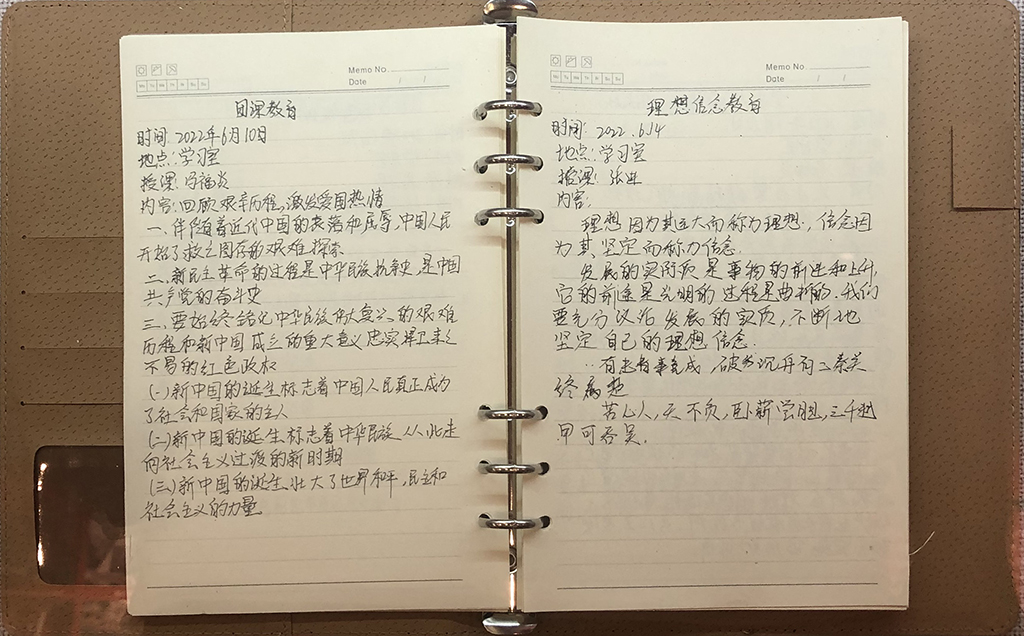 Memo No.
Date / /
Mo Tu We Th Fr Sa Su
团课教育
时间: 2022年6月10日
地点: 学习室
授课: 冯福炎
内容: 回顾艰辛历程,激发爱国热情
一、伴随着近代中国的衰落和屈辱,中国人民
开始了救亡图存的艰难探索
二、新民主革命的过程是中华民族抗争史,是中国
共产党的奋斗史
三、要始终铭化中华民族伟大复兴的艰难
历程和新中国成立的重大意义忠实捍卫来之
不易的红色政权
(一)新中国的诞生标志着中国人民真正成为
了社会和国家的主人
(二)新中国的诞生标志着中华民族从此走
向社会主义过渡的新时期
(三)新中国的诞生壮大了世界和平,民主和
社会主义的力量
Memo No.
Date / /
Mo Tu We Th Fr Sa Su
理想信念教育
时间: 2022.6.14
地点: 学习室
授课: 张
内容:
理想因为其远大而称为理想,信念因
为其坚定而称为信念.
发展的实际质是事物的前进和上升,
它的前途是光明的过程是曲折的.我们
要充分认治发展的实质,不断地
坚定自己的理想信念.
有志者事竟成,破釜沉舟百二秦关
终属楚
苦心人,天不负,卧薪尝胆,三千越
甲可吞吴.